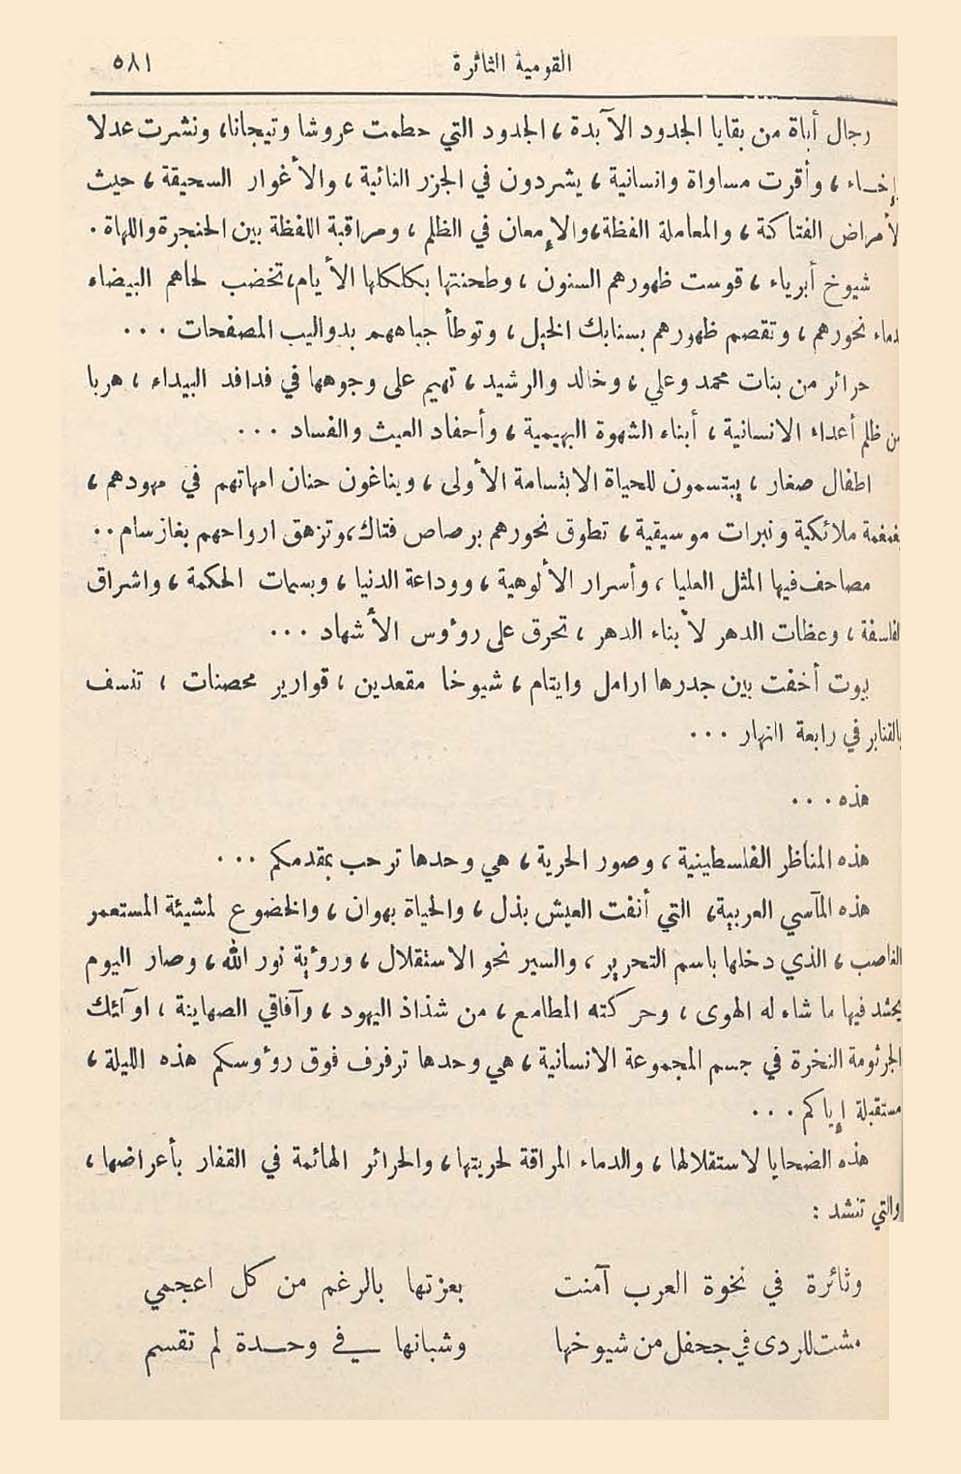 القومية الثائرة ٥٨١
رجال أباة من بقايا الجدود الآبدة ، الجدود التي حطمت عروشا وتيجانا، ونشرت عدلا
إخـاء ، وأقرت مساواة وانسانية ، يشردون في الجزر النائية ، والأغوار السحيقة ، حيث
لأمراض الفتاكة ، والمعاملة الفظة، والإمعان في الظلم ، ومراقبة اللفظة بين الحنجرة واللهاة .
شيوخ أبرياء ، قوست ظهورهم السنون ، وطحنتها بكلكلها الأيام، تخضب لحاهم البيضاء
دماء نحورهم ، وتقصم ظهورهم بسنابك الخيل ، وتوطأ جباههم بدواليب المصفحات ...
حرائر من بنات محمد وعلي ، وخالد والرشيد ، تهيم على وجوهها في فدافد البيداء ، هربا
من ظلم أعداء الانسانية ، أبناء الشهوة البهيمية ، وأحفاد العيث والفساد ...
اطفال صغار ، يبتسمون للحياة الابتسامة الأولى ، ويناغون حنان امهاتهم في مهودهم ،
بغمغمة ملائكية ونبرات موسيقية ، تطوق نحورهم برصاص فتاك، وتزهق ارواحهم بغاز سام ..
مصاحف فيها المثل العليا ، وأسرار الألوهية ، ووداعة الدنيا ، وبسمات الحكمة ، واشراق
لفلسفة ، وعظات الدهر لأبناء الدهر ، تحرق على رؤوس الأشهاد ...
بيوت أخفت بين جدرها ارامل وايتام ، شيوخا مقعدين ، قوارير محصنات ، تنسف
بالقنابر في رابعة النهار ...
هذه ...
هذه المناظر الفلسطينية ، وصور الحرية ، هي وحدها ترحب بمقدمكم ...
هذه المآسي العربية، التي أنفت العيش بذل ، والحياة بهوان ، والخضوع لمشيئة المستعمر
الغاصب ، الذي دخلها باسم التحرير ، والسير نحو الاستقلال ، ورؤية نور الله ، وصار اليوم
يحشد فيها ما شاء له الهوى ، وحركته المطامع ، من شذاذ اليهود ، وآفاقي الصهاينة ، اوآئك
الجرثومة النخرة في جسم المجموعة الانسانية ، هي وحدها ترفرف فوق رؤوسكم هذه الليلة ،
مستقبلة إياكم ...
هذه الضحايا لاستقلالها ، والدماء المراقة لحريتها ، والحرائر الهائمة في القفار بأعراضها ،
والتي تنشد :
وثائرة في نخوة العرب آمنت بعزتها بالرغم من كل اعجمي
مشت للردى في جحفل من شيوخها وشبانها في وحدة لم تقسم